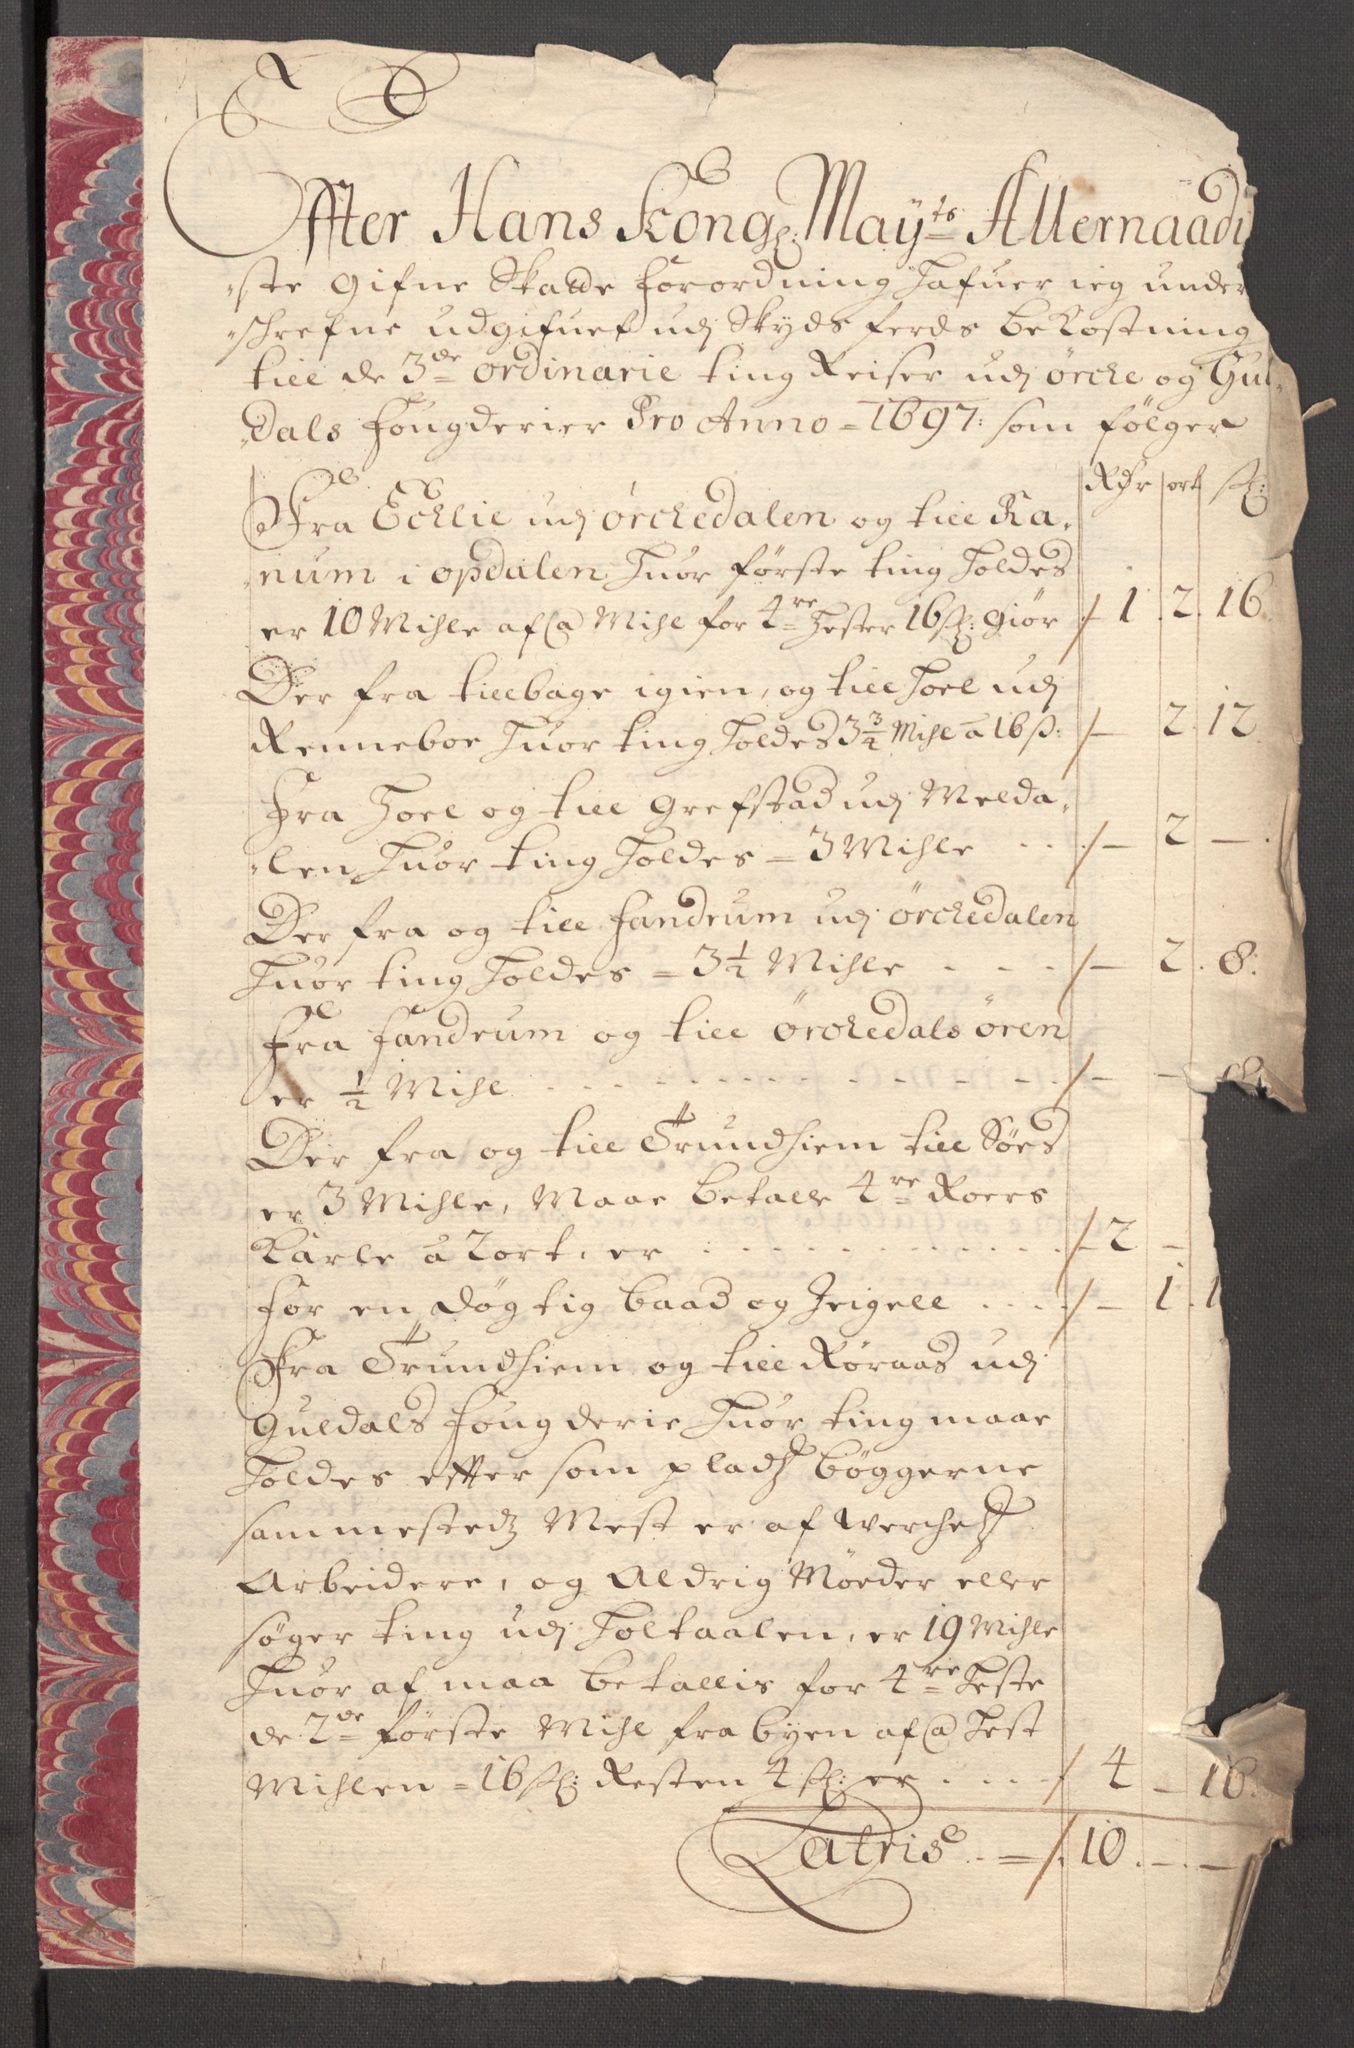 Effter Hans Kongl: Mayts Allernaadi
ste gifne Skatte forordning hafuer ieg under
schrefne udgifuet udj Skyds ferds bekostning
till de 3de ordinarie ting Reiser udj Örcke og Gul
dals fougderier Pro Anno = 1697: som fölger
Rdr ort ß:
Fra Ecklie udj Örckedalen og till Ra
num i opdalen huor förste ting holdes
er 10 Mihle af @ Mihl for 4re Hester 16 ß: giör / 1 . 2 . 16
Der fra tillbage igien, og till Hoel udj
Renneboe huor ting holdes 3 3/4 Mihl a 16 ß: / — 2. 12
Fra Hoel og till Grefstad udj Melda
len huor ting holdes = 3 Mihle . . / — 2 —
Der fra og till Fandrum udj Örckedalen
huor ting holdes = 3 1/2 Mihle . . . . / — 2 . 8:
Fra Fandrum og till Örckedals ören
er 1/2 Mihl . . . . . . . . / — —
Der fra og till Trundhiem till Söes
er 3 Mihle, Maae betalle 4re Roers
Karle a 2 ort, er . . . . . . . / 2 —
for en døgtig baad og Seigell . . . . / — 1 . 1
Fra Trundhiem og till Röraas udj
Guldals fougderie huor ting maae
holdes effter som pladz böggerne
sammestedz Mest er af Werchetz
Arbeidere, og Aldrig Möeder eller
söger ting udj Holtaalen, er 19 Mihle
huor af maa betallis for 4re Heste
de 2de förste Mihl fra byen af @ Hest
Mihlen = 16 ß: Resten 4 ß: er . . . . / 4 — 16
Latris . = / . 10 . — . —